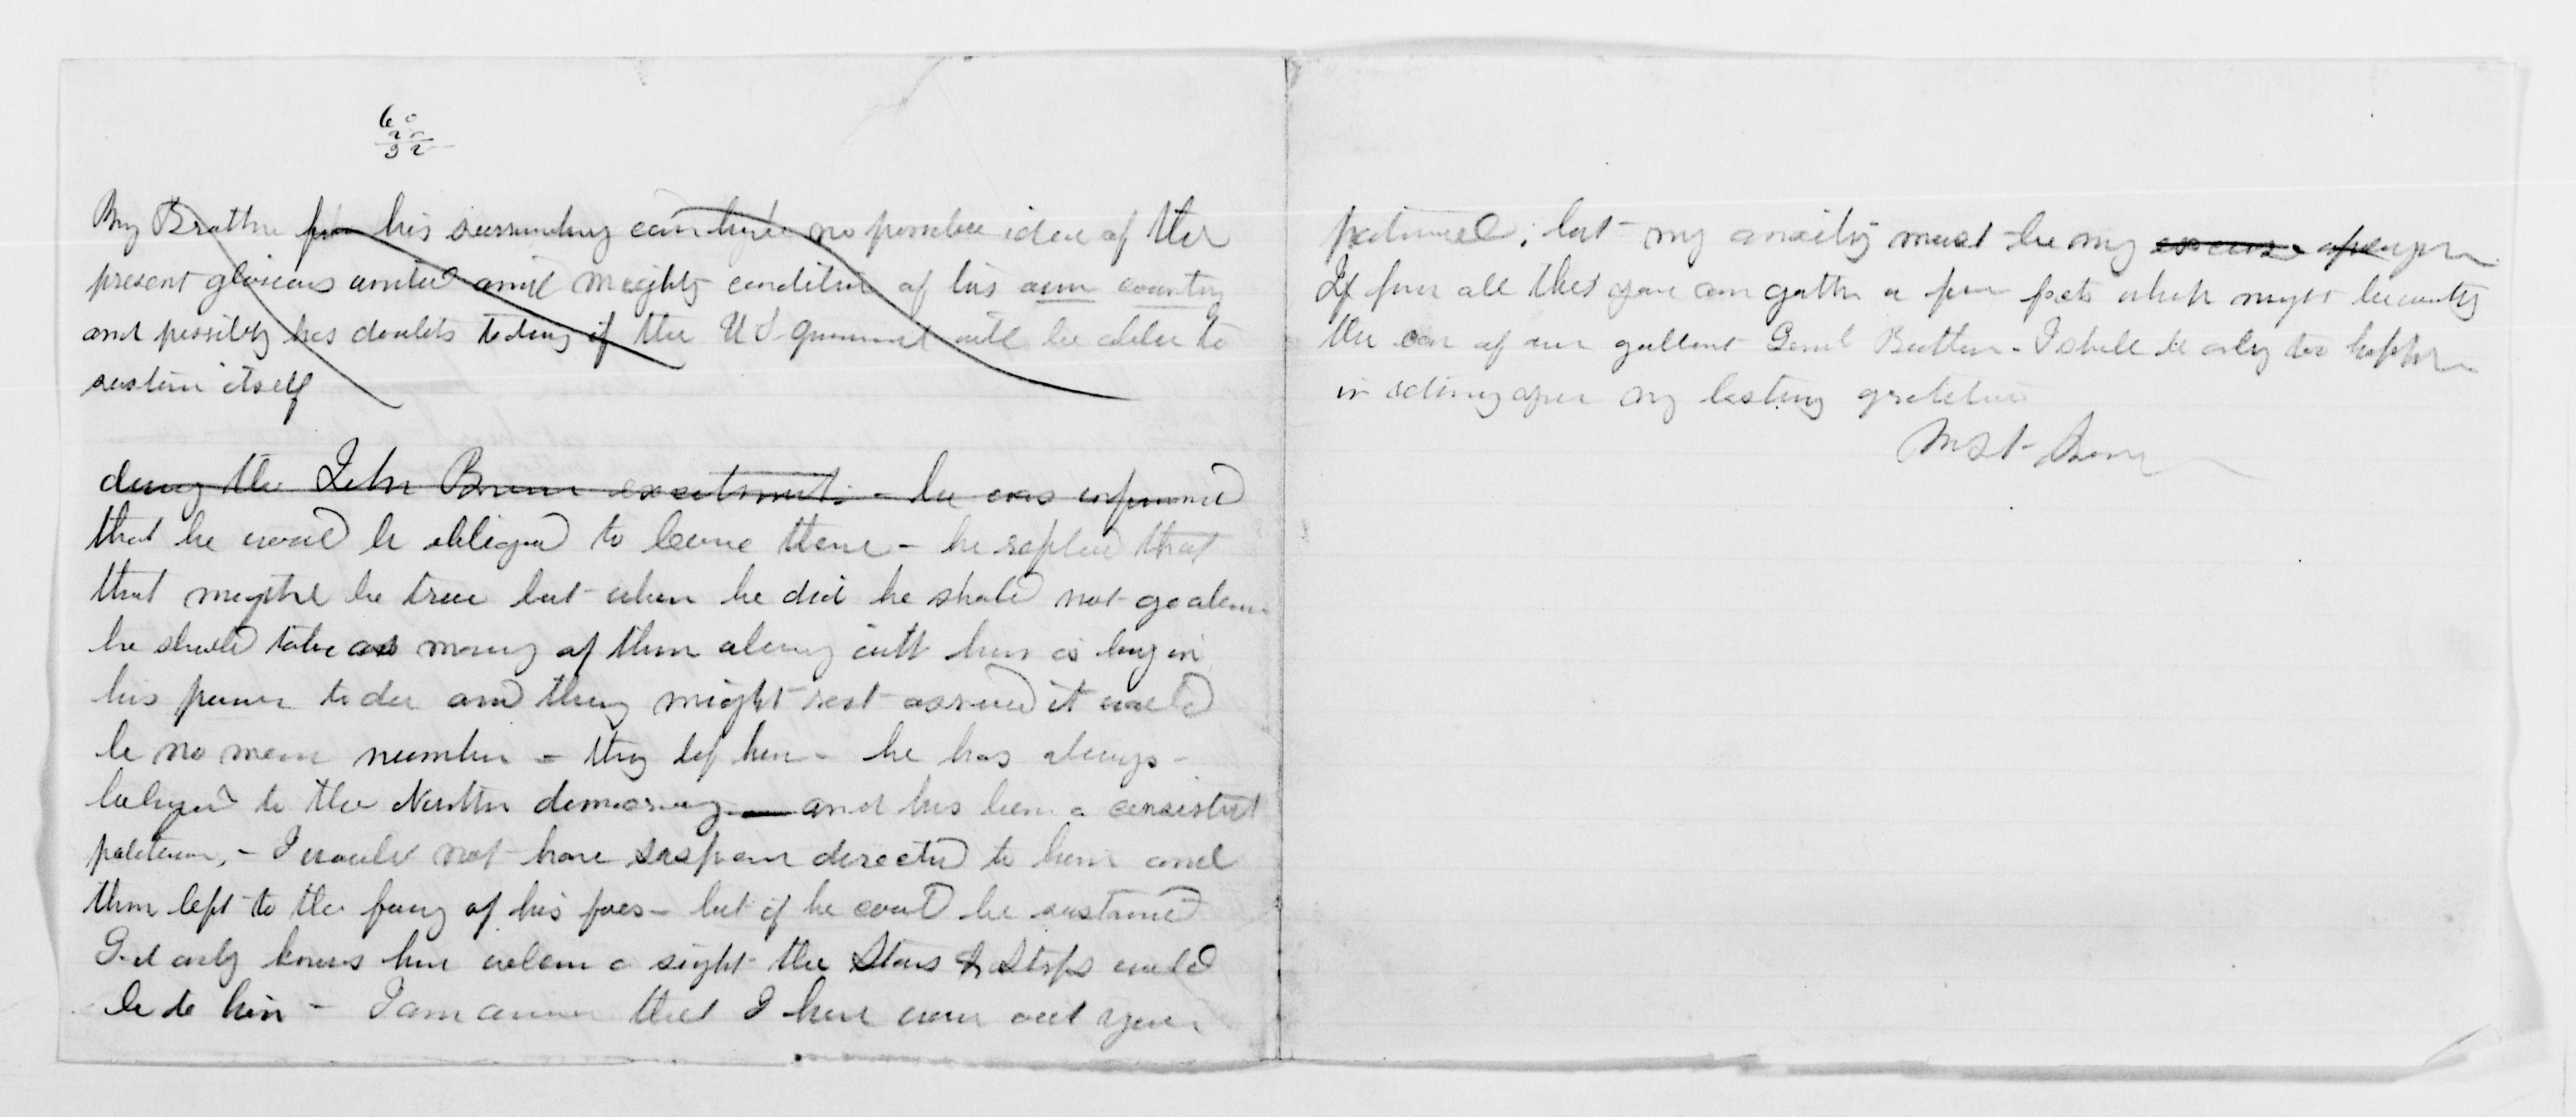 60
32
My Brother from his surrounding can have no possible idea of the
present glorious united and mighty condition of his own country
and possibly has doubts today if the U S. government will be able to
sustain itself
during the John Brown excitement - he was informed
that he would be obliged to leave there - he replied that
that might be true but when he did he should not go alone
he should take as many of them along with him as lay in
his power to do and they might rest assured it would
be no mean number - they left him - he has always -
belonged to the Northern democracy and has been a consistent
politician, - I would not have suspicion directed to him and
then left to the fury of his foes - but if he could be sustained
God only knows how welcome a sight the Stars & Stripes would
be to him - I am aware that I have worn out your
patience; but my anxiety must be my excuse apology
If from all this you can gather a few facts which might be worthy
the ear of our gallant Genl Butler - I shall be only too happy
in my lasting gratitude